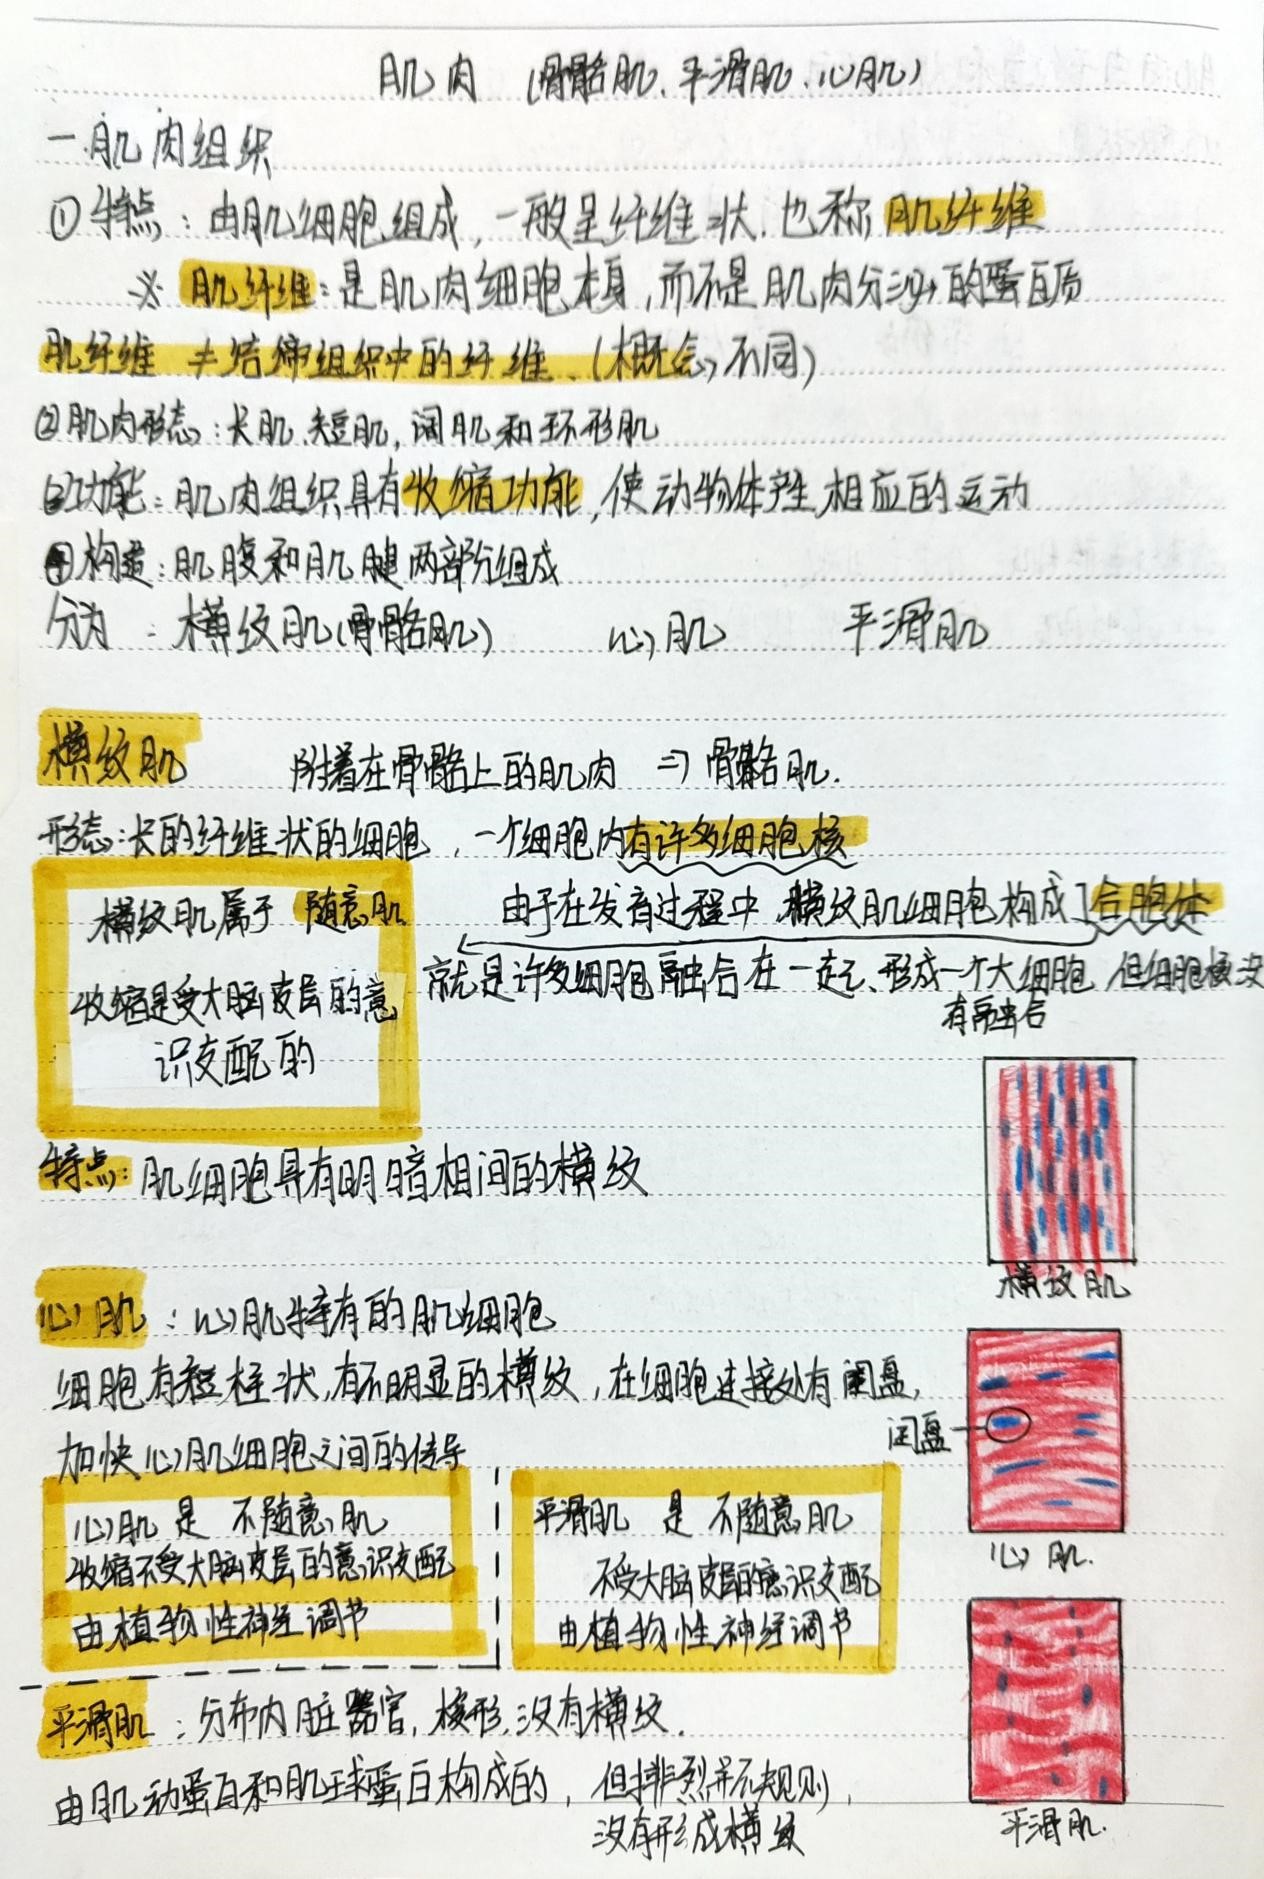 肌肉（骨骼肌、平滑肌、心肌）
一.肌肉组织
①特点：由肌细胞组成，一般呈纤维状.也称肌纤维
※ 肌纤维：是肌肉细胞本身，而不是肌肉分泌的蛋白质
肌纤维 ≠ 结缔组织中的纤维、(概念不同)
②肌肉形态：长肌、短肌，阔肌和环形肌
③功能：肌肉组织具有收缩功能，使动物体产生相应的运动
④构造：肌腹和肌腱两部分组成
分为：横纹肌(骨骼肌) 心肌 平滑肌
横纹肌 附着在骨骼上的肌肉 => 骨骼肌.
形态：长的纤维状的细胞，一个细胞内有许多细胞核
横纹肌属于 随意肌
收缩是受大脑皮层的意
识支配的
由于在发育过程中，横纹肌细胞构成]合胞体
就是许多细胞融合在一起、形成一个大细胞，但细胞核没
有融合
特点：肌细胞具有明暗相间的横纹
横纹肌
心肌：心肌特有的肌细胞
细胞有短柱状，有不明显的横纹，在细胞连接处有闰盘，
闰盘
加快心肌细胞之间的传导
心肌 是 不随意肌
收缩不受大脑皮层的意识支配
由植物性神经调节
平滑肌 是 不随意肌
不受大脑皮层的意识支配
由植物性神经调节
心肌.
平滑肌：分布内脏器官，梭形，没有横纹.
由肌动蛋白和肌球蛋白构成的，但排列并不规则，
没有形成横纹
平滑肌.